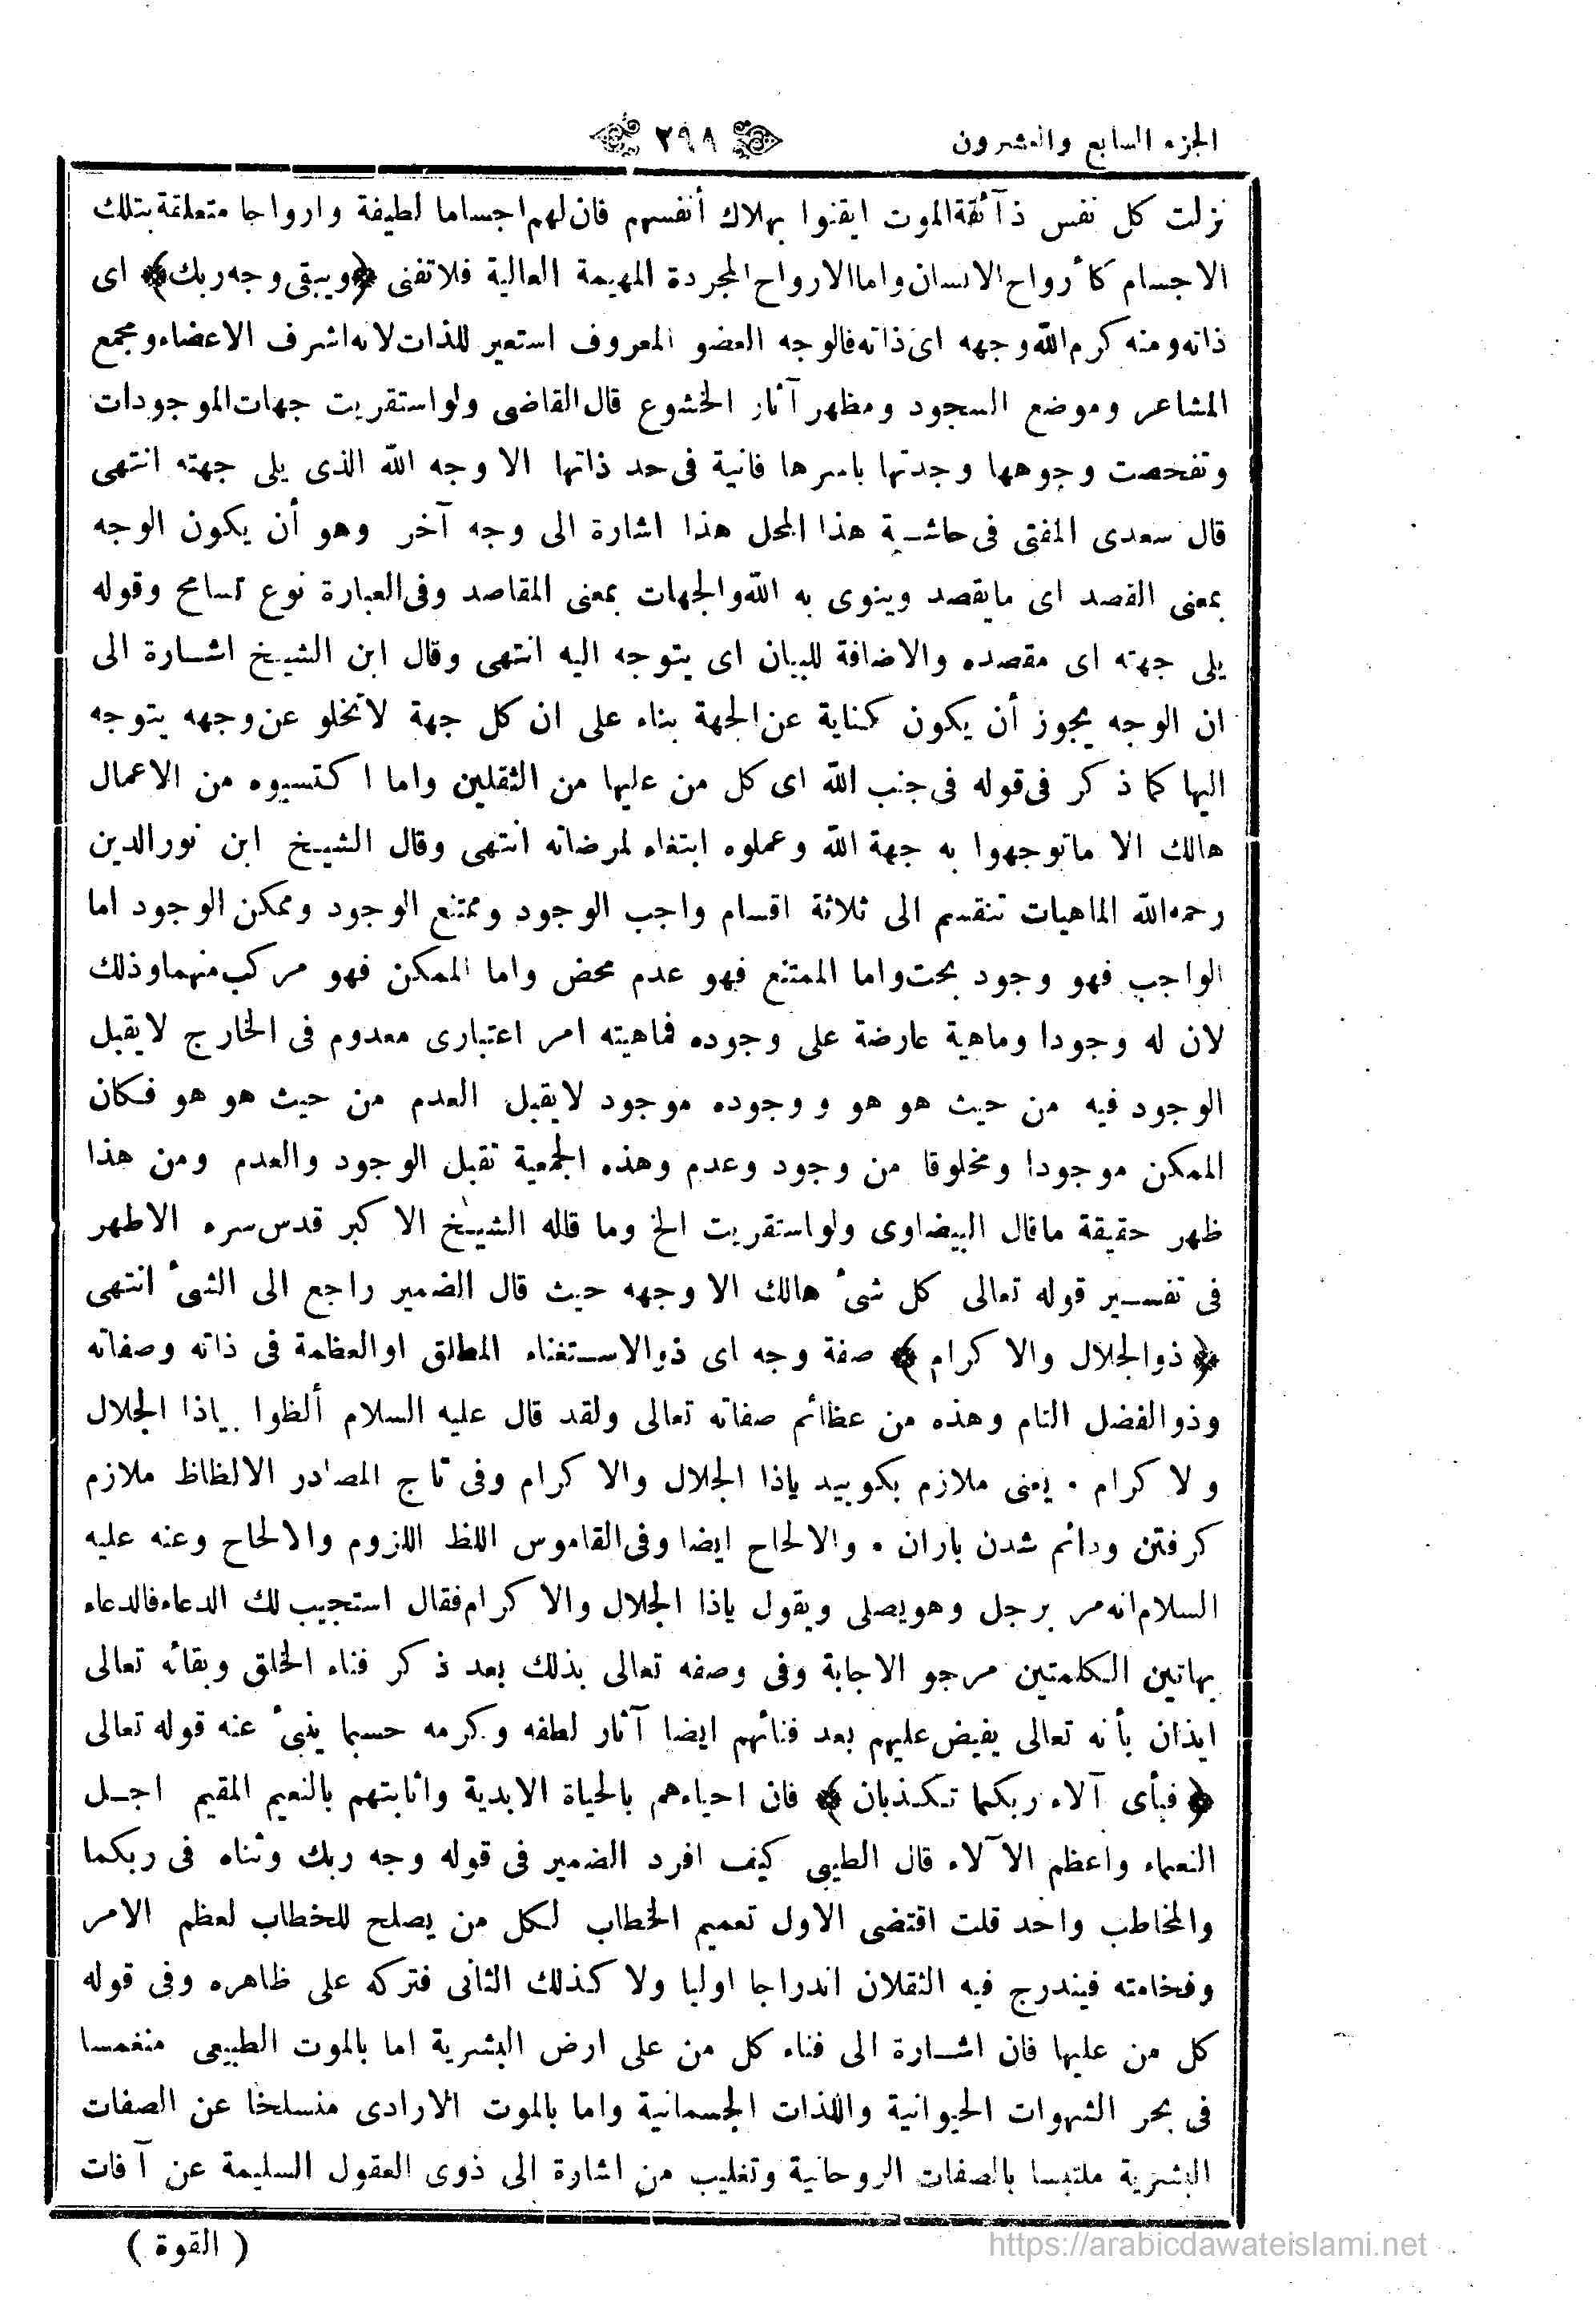 الجزء السابع والعشرون ٢٩٨
نزلت كل نفس ذآئقة الموت ايقنوا بهلاك أنفسهم فان لهم اجساما لطيفة وارواحا متعلقة بتلك
الاجسام كأرواح الانسان واما الارواح المجردة المهيمة العالية فلا تفنى ﴿ويبقى وجه ربك﴾ اى
ذاته ومنه كرم الله وجهه اى ذاته فالوجه العضو المعروف استعير للذات لانه اشرف الاعضاء ومجمع
المشاعر وموضع السجود ومظهر آثار الخشوع قال القاضى ولو استقريت جهات الموجودات
وتفحصت وجوهها وجدتها باسرها فانية فى حد ذاتها الا وجه الله الذى يلى جهته انتهى
قال سعدى المفتى فى حاشية هذا المحل هذا اشارة الى وجه آخر وهو أن يكون الوجه
بمعنى القصد اى مايقصد وينوى به الله والجهات بمعنى المقاصد وفى العبارة نوع تسامح وقوله
يلى جهته اى مقصده والاضافة للبيان اى يتوجه اليه انتهى وقال ابن الشيخ اشارة الى
ان الوجه يجوز أن يكون كناية عن الجهة بناء على ان كل جهة لاتخلو عن وجهه يتوجه
اليها كما ذكر فى قوله فى جنب الله اى كل من عليها من الثقلين واما اكتسبوه من الاعمال
هالك الا ماتوجهوا به جهة الله وعملوه ابتغاء لمرضاته انتهى وقال الشيخ ابن نورالدين
رحمه الله الماهيات تنقسم الى ثلاثة اقسام واجب الوجود وممتنع الوجود وممكن الوجود اما
الواجب فهو وجود بحت واما الممتنع فهو عدم محض واما الممكن فهو مركب منهما وذلك
لان له وجودا وماهية عارضة على وجوده فماهيته امر اعتبارى معدوم فى الخارج لايقبل
الوجود فيه من حيث هو هو ووجوده موجود لايقبل العدم من حيث هو هو فكان
الممكن موجودا ومخلوقا من وجود وعدم وهذه الجمعية تقبل الوجود والعدم ومن هذا
ظهر حقيقة ماقال البيضاوى ولو استقريت الخ وما قاله الشيخ الاكبر قدس سره الاطهر
فى تفسير قوله تعالى كل شىء هالك الا وجهه حيث قال الضمير راجع الى الشىء انتهى
﴿ذو الجلال والاكرام﴾ صفة وجه اى ذو الاستغناء المطلق او العظمة فى ذاته وصفاته
وذو الفضل التام وهذه من عظائم صفاته تعالى ولقد قال عليه السلام ألظوا بياذا الجلال
ولاكرام • يعنى ملازم بكوييد ياذا الجلال والاكرام وفى تاج المصادر الالظاظ ملازم
كرفتن ودائم شدن باران • والالحاح ايضا وفى القاموس اللظ اللزوم والالحاح وعنه عليه
السلام انه مر برجل وهو يصلى ويقول ياذا الجلال والاكرام فقال استجيب لك الدعاء فالدعاء
بهاتين الكلمتين مرجو الاجابة وفى وصفه تعالى بذلك بعد ذكر فناء الخلق وبقائه تعالى
ايذان بأنه تعالى يفيض عليهم بعد فنائهم ايضا آثار لطفه وكرمه حسبما ينبئ عنه قوله تعالى
﴿فبأى آلاء ربكما تكذبان﴾ فان احياءهم بالحياة الابدية واثابتهم بالنعيم المقيم اجل
النعماء واعظم الآلاء قال الطيبى كيف افرد الضمير فى قوله وجه ربك وثناه فى ربكما
والمخاطب واحد قلت اقتضى الاول تعميم الخطاب لكل من يصلح للخطاب لعظم الامر
وفخامته فيندرج فيه الثقلان اندراجا اوليا ولا كذلك الثانى فتركه على ظاهره وفى قوله
كل من عليها فان اشارة الى فناء كل من على ارض البشرية اما بالموت الطبيعى منغمسا
فى بحر الشهوات الحيوانية واللذات الجسمانية واما بالموت الارادى منسلخا عن الصفات
البشرية ملتبسا بالصفات الروحانية وتغليب من اشارة الى ذوى العقول السليمة عن آفات
( القوة )
https://arabicdawateislami.net